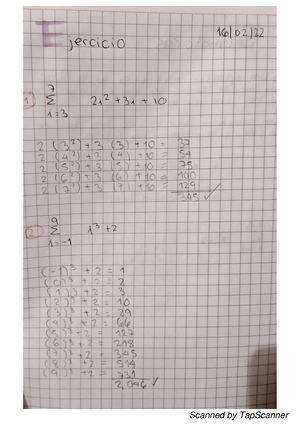 Ejercicio
16/02/22
1
7
Σ 2i² + 3i + 10
i = 3
2 (3²) + 3 (3) + 10 = 37
2 (4²) + 3 (4) + 10 = 54
2 (5²) + 3 (5) + 10 = 75
2 (6²) + 3 (6) + 10 = 100
2 (7²) + 3 (7) + 10 = 129
395 ✓
2
9
Σ i³ + 2
i = -1
(-1)³ + 2 = 1
(0)³ + 2 = 2
(1)³ + 2 = 3
(2)³ + 2 = 10
(3)³ + 2 = 29
(4)³ + 2 = 66
(5)³ + 2 = 127
(6)³ + 2 = 218
(7)³ + 2 = 345
(8)³ + 2 = 514
(9)³ + 2 = 731
2,046 ✓
Scanned by TapScanner